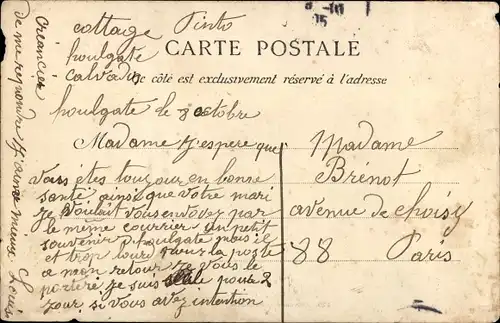 cottage Pinto
houlgate
calvados
CARTE POSTALE
Ce côté est exclusivement réservé à l'adresse
houlgate le 8 octobre
Madame J'espere que
Vous êtes toujour en bonne
santé ainsi que votre mari
Je voulait vous envoÿez par
le même courrier un petit
souvenir d'houlgate mais il
et trop lourd pour la poste
a mon retour Je vous le
porteré Je suis seule pour 2
jour si vous avez intention
de me repondre J'aime mieux Louis
Madame
Brénot
avenue de choisy
88 Paris